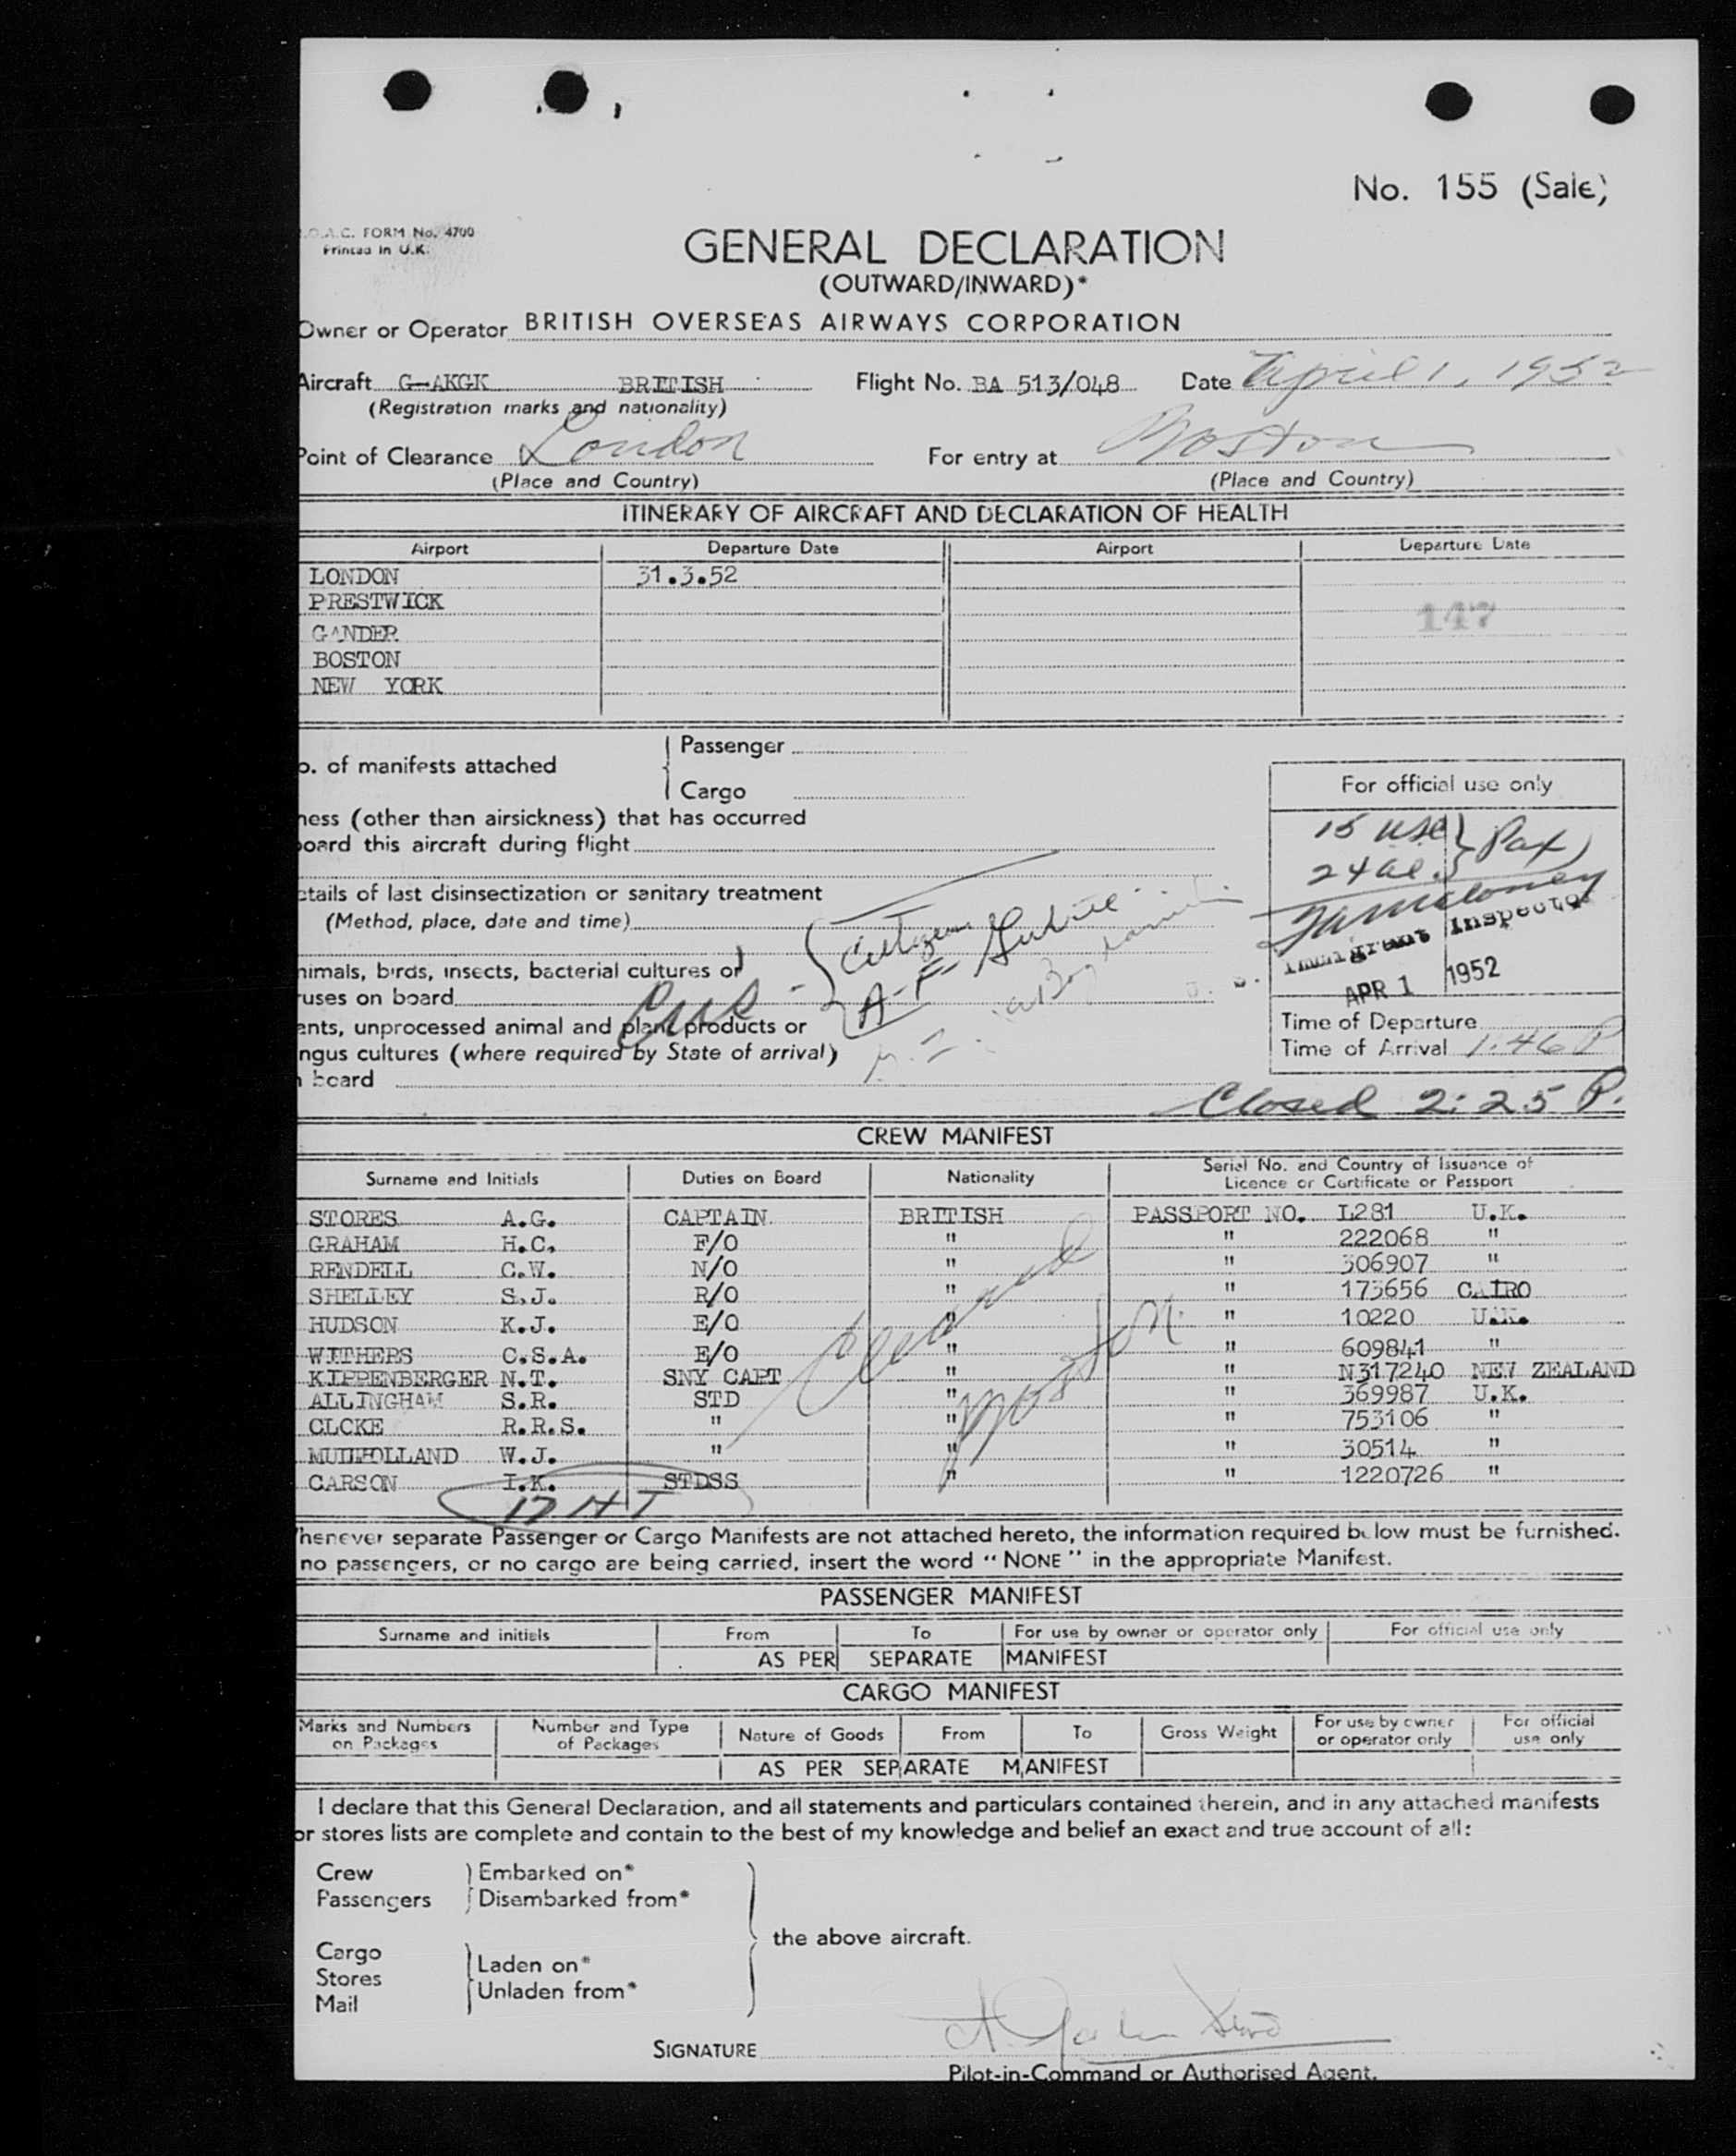 No. 155 (Sale)
.O.A.C. FORM No. 4700
Printed in U.K.
GENERAL DECLARATION
(OUTWARD/INWARD)*
Owner or Operator BRITISH OVERSEAS AIRWAYS CORPORATION
Aircraft G-AKGK BRITISH Flight No. BA 513/048 Date April 1, 1952
(Registration marks and nationality)
Point of Clearance London For entry at Boston
(Place and Country) (Place and Country)
ITINERARY OF AIRCRAFT AND DECLARATION OF HEALTH
Airport Departure Date Airport Departure Date
LONDON 31.3.52
PRESTWICK 147
GANDER
BOSTON
NEW YORK
Passenger
o. of manifests attached
Cargo
For official use only
ness (other than airsickness) that has occurred
board this aircraft during flight
15 USC } Pax
24 al.
etails of last disinsectization or sanitary treatment
(Method, place, date and time)
Citizen
Immigrant Inspector
nimals, birds, insects, bacterial cultures or
ruses on board
A-F
APR 1 1952
ants, unprocessed animal and plant products or
ngus cultures (where required by State of arrival)
n board
Time of Departure
Time of Arrival 1.46 P
Closed 2:25 P.
CREW MANIFEST
Surname and Initials Duties on Board Nationality Serial No. and Country of Issuance of Licence or Certificate or Passport
STORES A.G. CAPTAIN BRITISH PASSPORT NO. L281 U.K.
GRAHAM H.C. F/O " " 222068 "
RENDELL C.W. N/O " " 306907 "
SHELLEY S.J. R/O " " 173656 CAIRO
HUDSON K.J. E/O " " 10220 U.K.
WITHERS C.S.A. E/O " " 609841 "
KIPPENBERGER N.T. SNY CAPT " " N317240 NEW ZEALAND
ALLINGHAM S.R. STD " " 369987 U.K.
CLCKE R.R.S. " " " 753106 "
MULHOLLAND W.J. " " " 30514 "
CARSON I.K. STDSS " " 1220726 "
Cleared Boston
17 H T
henever separate Passenger or Cargo Manifests are not attached hereto, the information required below must be furnished.
no passengers, or no cargo are being carried, insert the word “NONE” in the appropriate Manifest.
PASSENGER MANIFEST
Surname and initials From To For use by owner or operator only For official use only
AS PER SEPARATE MANIFEST
CARGO MANIFEST
Marks and Numbers on Packages Number and Type of Packages Nature of Goods From To Gross Weight For use by owner or operator only For official use only
AS PER SEPARATE MANIFEST
I declare that this General Declaration, and all statements and particulars contained therein, and in any attached manifests
or stores lists are complete and contain to the best of my knowledge and belief an exact and true account of all:
Crew } Embarked on*
Passengers } Disembarked from*
the above aircraft.
Cargo
Stores } Laden on*
Mail } Unladen from*
SIGNATURE
Pilot-in-Command or Authorised Agent.